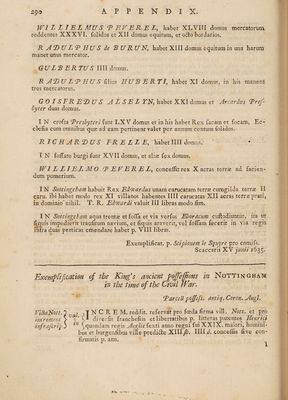 290 APPENDIX.
WILLIELMUS PEVEREL, habet XLVIII domus mercatorum
reddentes XXXVI. solidos et XII domus equitum, et octo bordarios.
RADULPHUS de BURUN, habet XIII domus equitum in una harum
manet unus mercator.
GULBERTUS IIII domus.
RADULPHUS filius HUBERTI, habet XI domus, in his manent
tres mercatores.
GOISFREDUS ALSELYN, habet XXI domus et Arcardus Pres-
byter duas domus.
IN crofta Presbyteri sunt LXV domus et in his habet Rex sacam et socam, Ec-
clesia cum omnibus quæ ad eam pertinent valet per annum centum solidos.
RICHARDUS FRELLE, habet IIII domus.
IN fossato burgi sunt XVII domus, et aliæ sex domus.
WILLIELMO PEVEREL, concessit rex X acras terræ ad facien-
dum pomerium.
IN Snottingeham habuit Rex Edwardus unam carucatam terræ cum gilda terræ II
caru. ibi habet modo rex XI villanos habentes IIII carucatas XII acras terræ prati,
in dominio nihil. T. R. Edwardi valuit III libras modo sim.
IN Snottingeham aqua trentæ et fossa et via versus Eboracum custodiuntur, ita ut
siquis impedierit transitum navium, et siquis araverit, vel fossam fecerit in via regis
infra duas perticas emendare habet p. VIII libras.
Exemplificat. p. Scipionem le Squyre pro comiss.
Scaccarii XV junii 1635.
Exemplification of the King's ancient possessions in NOTTINGHAM
in the time of the Civil War.
Parcell possess. antiq. Coron. Angl.
Villa Nott.
increment
infrascrip.
val.
in
INCREM. reddit. reservat pro feoda firma vill. Nott. et pro
diversis franchesiis et libertatibus p. litteras patentes Henrici
quondam regis Angliæ sexti anno regni sui XXIX. maiori, homini-
bus et burgensibus villæ predictæ XIII s. IIII d. concessis sive con-
firmatis p. ann.
1